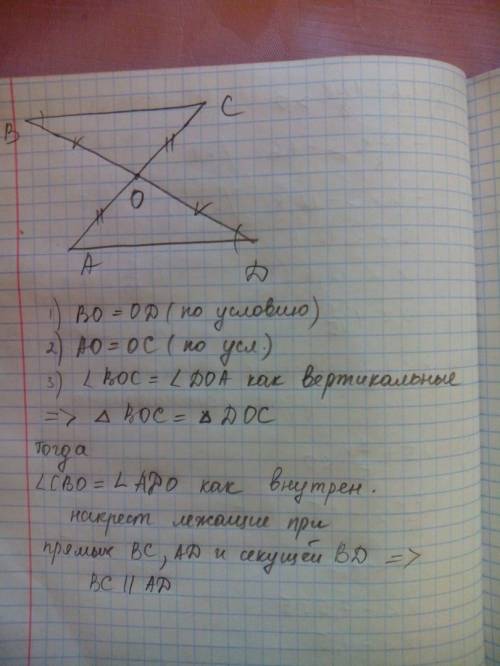 B
C
O
A
D
1) BO = OD (по условию)
2) AO = OC (по усл.)
3) ∠BOC = ∠DOA как вертикальные
=> △ BOC = △ DOC
Тогда
∠CBO = ∠ADO как внутрен.
накрест лежащие при
прямых BC, AD и секущей BD =>
BC || AD